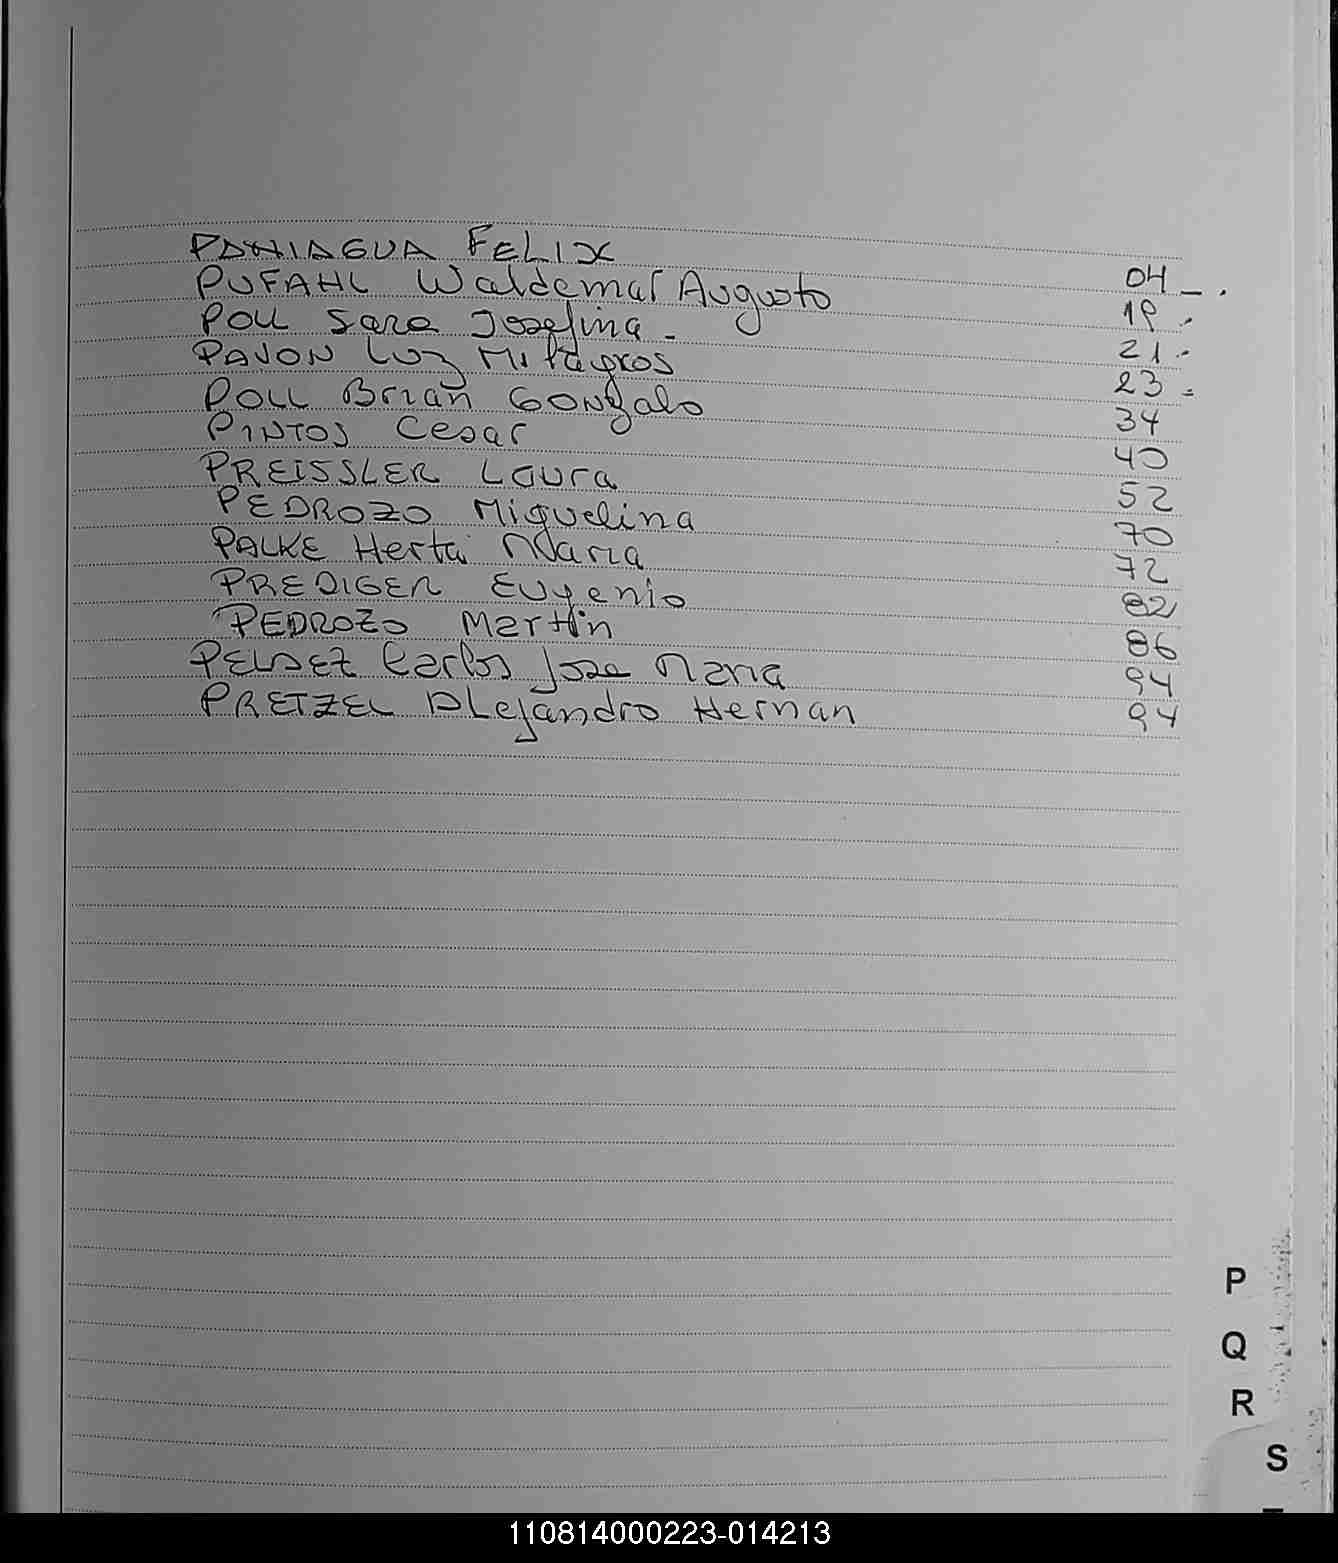 PANIAGUA FELIX 04 -.
PUFAHL Waldemar Augusto 19.
POLL Sara Josefina - 21.
PAJON Luz Milagros 23 =
POLL Brian Gonzalo 34
PINTOS Cesar 40
PREISSLER Laura 52
PEDROZO Miguelina 70
PALKE Herta Maria 72
PREDIGER Eugenio 82
PEDROZO Martin 86
PELAEZ Carlos Jose Maria 94
PRETZEL Alejandro Hernan 94
P
Q
R
S
110814000223-014213